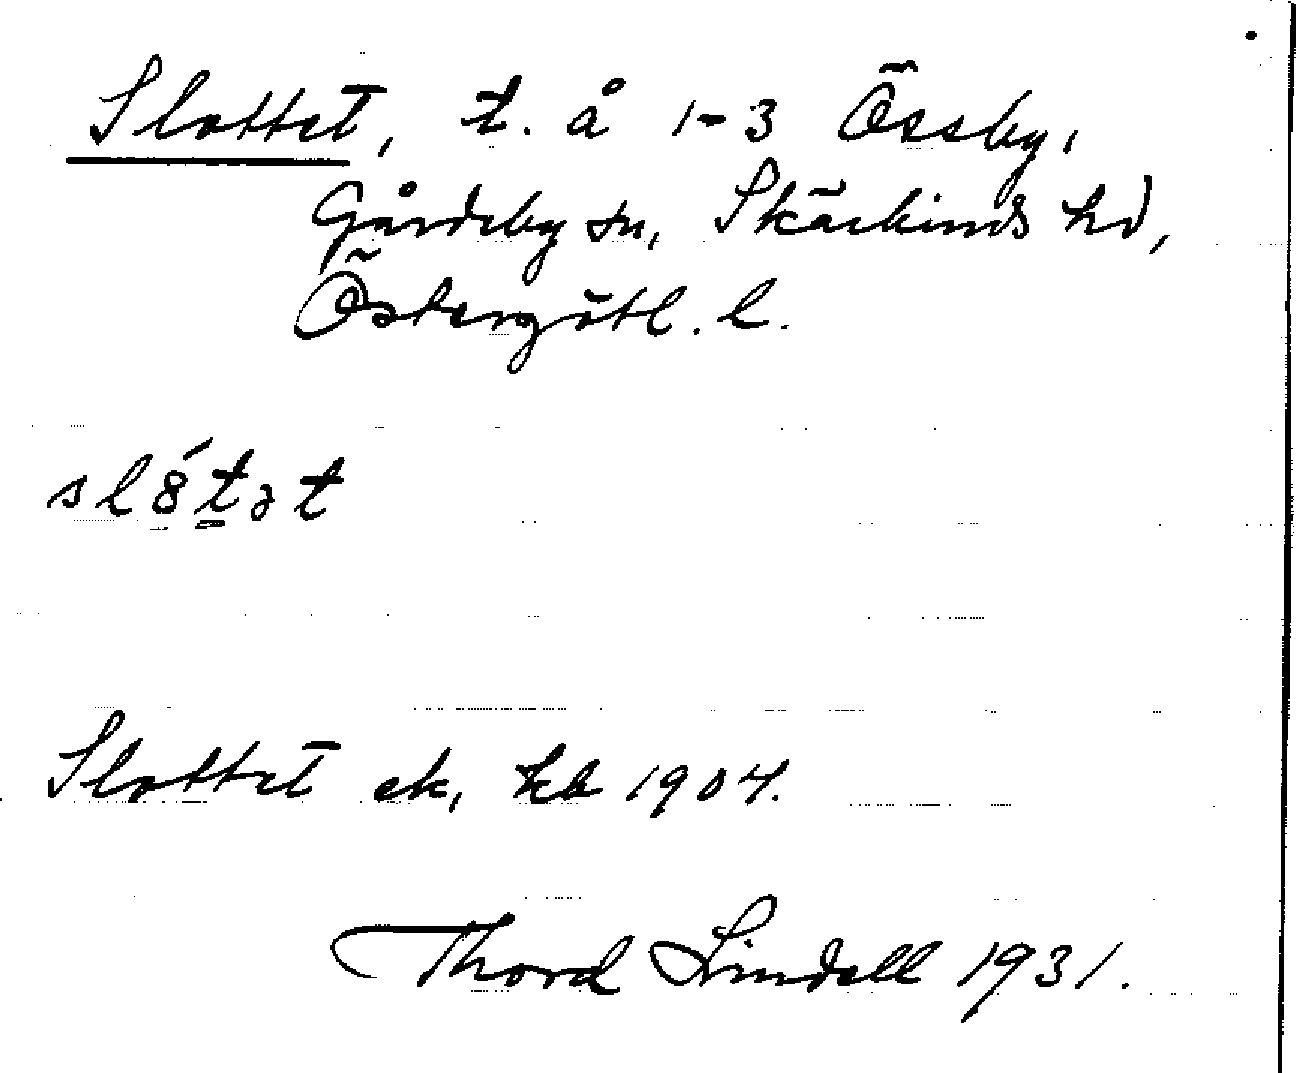 Slottet, t. å 1-3 Össby,
Gårdeby sn, Skärkinds hd,
Östergötl. l.
sl8́t̠ət
Slottet ek, kb 1904.
Thord Lindell 1931.